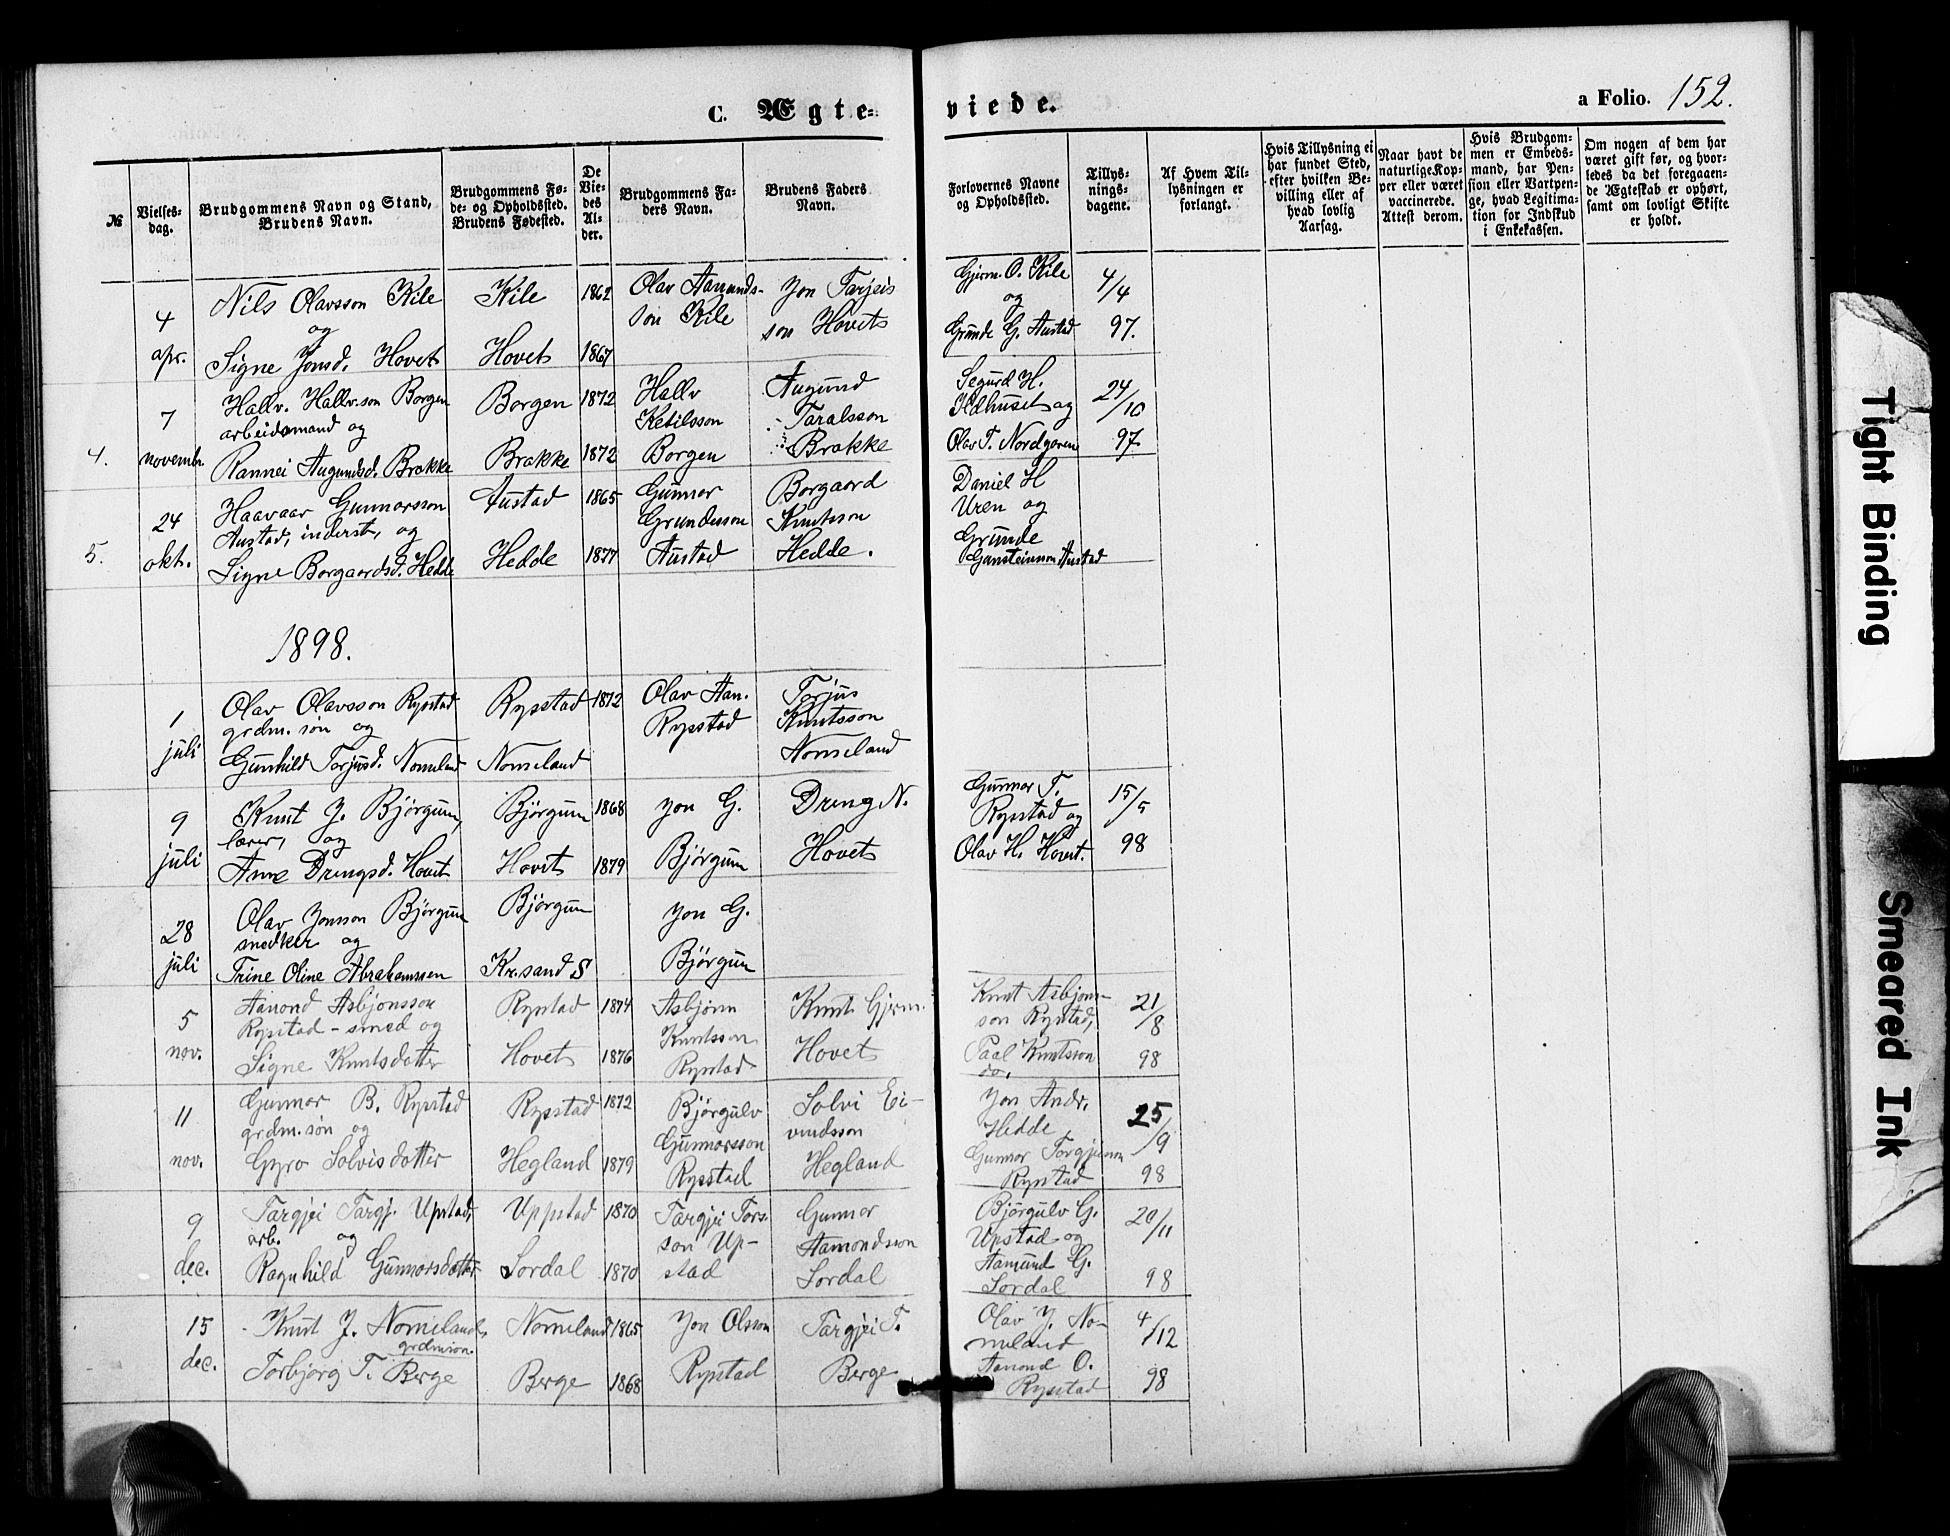 C. Ægte-
viede.
a Folio. 152.
№
Vielses-
dag.
Brudgommens Navn og Stand,
Brudens Navn.
Brudgommens Fø-
de- og Opholdssted.
Brudens Fødested.
De
Vie-
des
Al-
der.
Brudgommens Fa-
ders Navn.
Brudens Faders
Navn.
Forlovernes Navne
og Opholdssted.
Tillys-
nings-
dagene.
Af Hvem Til-
lysningen er
forlangt.
Hvis Tillysning ei
har fundet Sted,
efter hvilken Be-
villing eller af
hvad lovlig
Aarsag.
Naar havt de
naturlige Kop-
per eller været
vaccinerede.
Attest derom.
Hvis Brudgom-
men er Embeds-
mand, har Pen-
sion eller Vartpen-
ge, hvad Legitima-
tion for Indskud
i Enkekassen.
Om nogen af dem har
været gift før, og hvor-
ledes da det foregaaen-
de Ægteskab er ophørt,
samt om lovligt Skifte
er holdt.
4
apr.
Nils Olavsson Kile
og
Signe Jonsd. Hovet
Kile
Hovet
1862
1867
Olav Aamunds-
son Kile
Jon Tarjeis
son Hovets
Gjerm. O. Kile
og
Grunde G. Austad
4/4
97.
4.
7
novembr.
Hallv. Hallv.son Borgen
arbeidsmand og
Rannei Augundsd. Brokke
Borgen
Brokke
1872
1872
Hallv
Ketilsson
Borgen
Augund
Taralsson
Brokke
Segurd H.
Ildhuset og
Olav T. Nordgaren
24/10
97.
5.
24
okt.
Haavaar Gunnarsson
Austad, inderst, og
Signe Borgaardsd. Hedde
Austad
Hedde
1865
1877
Gunnar
Grundesson
Austad
Borgaard
Knutsson
Hedde.
Daniel H
Uren og
Grunde
Gunsteinson Austad
1898.
1
juli
Olav Olavsson Rysstad
grdm. søn og
Gunhild Torjusd. Nomeland
Rysstad
Nomeland
1872
Olav Aan.
Rysstad
Torjus
Knutsson
Nomeland
9
juli
Knut J. Bjørgum,
lærer, og
Anne Drengsd. Hovet
Bjørgum
Hovet
1868
1879
Jon G.
Bjørgum
Dreng N.
Hovet
Gunnar T.
Rysstad og
Olav H. Hovet.
15/5
98
28
juli
Olav Jonsson Bjørgum
snedker og
Trine Oline Abrahamsen
Bjørgum
Kr.sand S
Jon G.
Bjørgum
5
nov.
Aanond Asbjønsson
Rysstad - smed og
Signe Knutsdotter
Rysstad
Hovet
1874
1876
Asbjørn
Knutsson
Rysstad
Knut Gjerm.
Hovet
Knut Asbjøns-
son Rystad,
Paal Knutsson
do.
21/8
98
11
nov.
Gunnar B. Rysstad
grdm. søn og
Gyro Solvisdotter
Rysstad
Hegland
1872
1879
Bjørgulv
Gunnarsson
Rysstad
Solvi Ei-
vindsson
Hegland
Jon Andr.
Hedde
Gunnar Torgjusson
Rystad
25/9
98
9
dec.
Targjei Targj. Upstad,
arb. og
Ragnhild Gunnarsdotter
Uppstad
Sordal
1870
1870
Targjei Tors-
son Up-
stad
Gunnar
Aamondsson
Sordal
Bjørgulv G.
Upstad og
Aamund G.
Sordal
20/11
98
15
dec.
Knut J. Nomeland,
grdmsøn.
Torbjørg T. Berge
Nomeland
Berge
1865
1868
Jon Olsson
Rystad
Targjei T.
Berge
Olav J. No-
meland
Aanond O.
Rysstad
4/12
98
Tight Binding
Smeared Ink